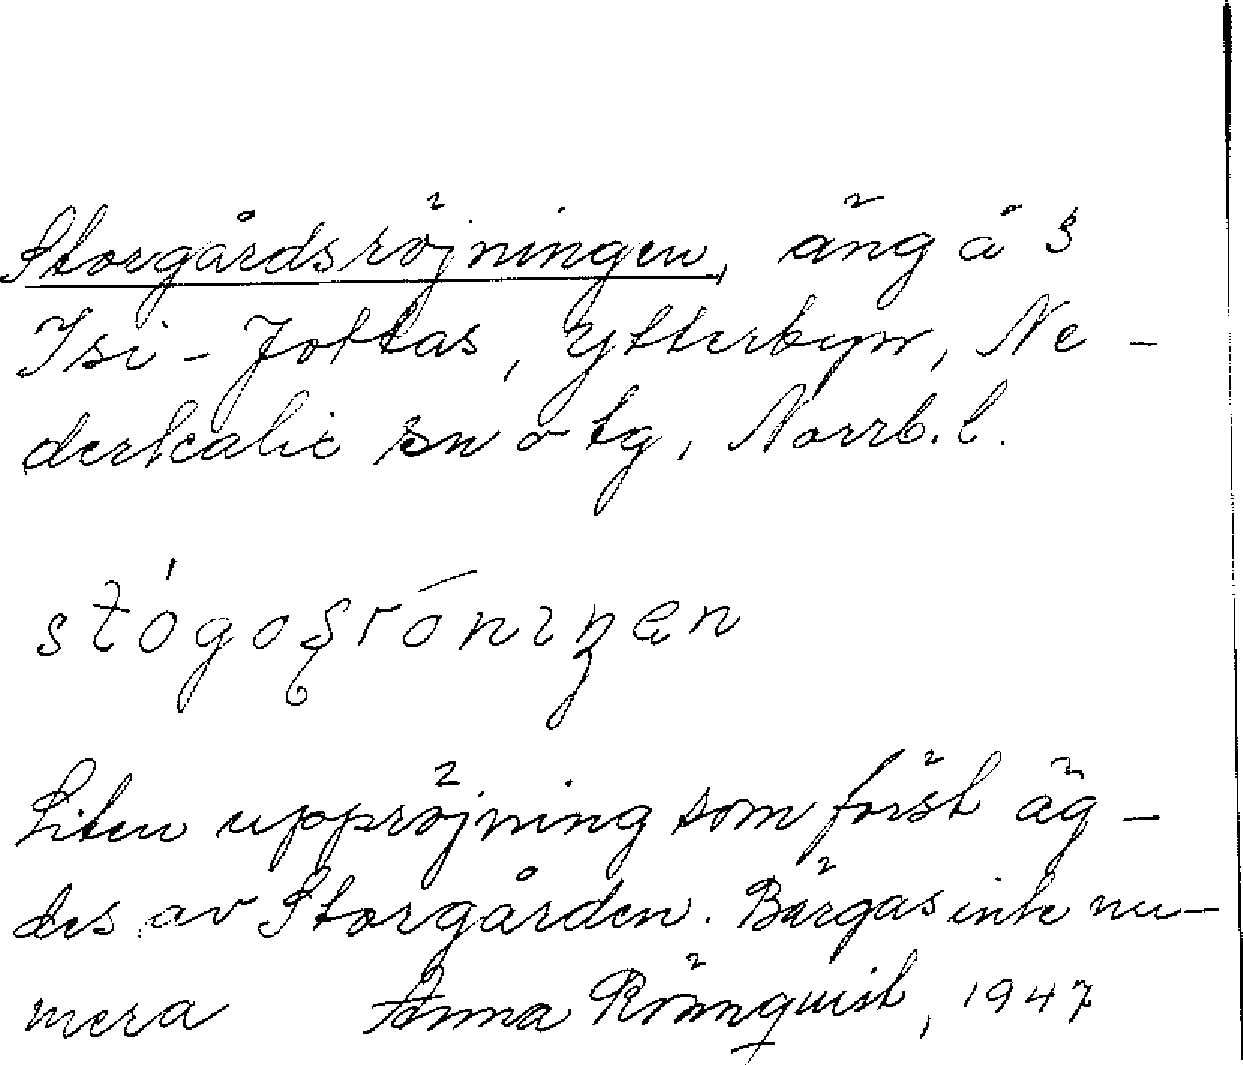 Storgårdsröjningen, äng å §
Isi-Jofsas, Ytterbyn, Ne-
derkalix sn o tg, Norrb. l.
stógoʂrónɪŋen
Liten uppröjning som först äg-
des av Storgården. Bärgas inte nu-
mera Anna Rönnquist, 1947